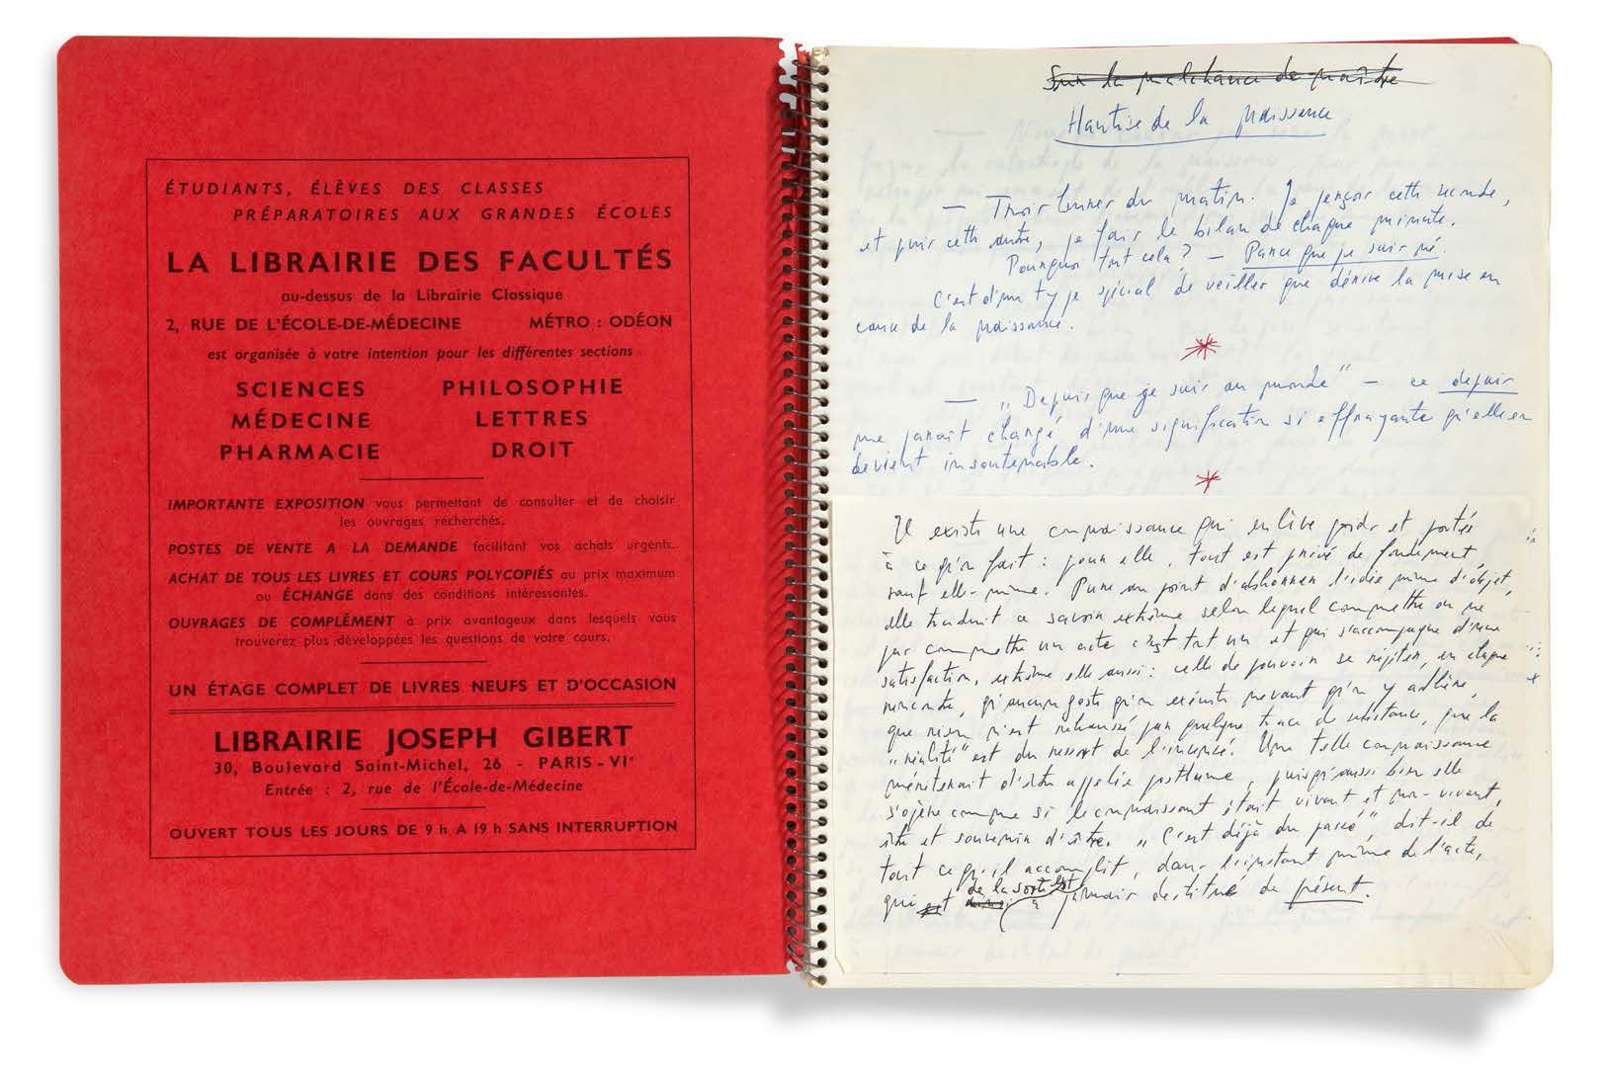 ÉTUDIANTS, ÉLÈVES DES CLASSES
PRÉPARATOIRES AUX GRANDES ÉCOLES
LA LIBRAIRIE DES FACULTÉS
au-dessus de la Librairie Classique
2, RUE DE L'ÉCOLE-DE-MÉDECINE MÉTRO : ODÉON
est organisée à votre intention pour les différentes sections
SCIENCES PHILOSOPHIE
MÉDECINE LETTRES
PHARMACIE DROIT
IMPORTANTE EXPOSITION vous permettant de consulter et de choisir
les ouvrages recherchés.
POSTES DE VENTE A LA DEMANDE facilitant vos achats urgents.
ACHAT DE TOUS LES LIVRES ET COURS POLYCOPIÉS au prix maximum
ou ÉCHANGE dans des conditions intéressantes.
OUVRAGES DE COMPLÉMENT à prix avantageux dans lesquels vous
trouverez plus développées les questions de votre cours.
UN ÉTAGE COMPLET DE LIVRES NEUFS ET D'OCCASION
LIBRAIRIE JOSEPH GIBERT
30, Boulevard Saint-Michel, 26 - PARIS-VIe
Entrée : 2, rue de l'École-de-Médecine
OUVERT TOUS LES JOURS DE 9 h A 19 h SANS INTERRUPTION
Sur la malchance de naître
Hantise de la naissance
— Trois heures du matin. Je perçois cette seconde,
et puis cette autre, je fais le bilan de chaque minute.
Pourquoi tout cela ? — Parce que je suis né.
C'est d'un type spécial de veilles que dérive la mise en
cause de la naissance.
— „Depuis que je suis au monde" — ce depuis
me paraît chargé d'une signification si effrayante qu'elle en
devient insoutenable.
Il existe une connaissance qui enlève poids et portée
à ce qu'on fait : pour elle, tout est privé de fondement,
sauf elle-même. Pure au point d'abhorrer l'idée même d'objet,
elle traduit ce savoir extrême selon lequel commettre ou ne
pas commettre un acte c'est tout un et qui s'accompagne d'une
satisfaction, extrême elle aussi : celle de pouvoir se répéter, en chaque
rencontre, qu'aucun geste qu'on exécute ne vaut qu'on y adhère,
que rien n'est rehaussé par quelque trace de substance, que la
„réalité" est du ressort de l'insensé. Une telle connaissance
mériterait d'être appelée posthume, puisqu'aussi bien elle
s'opère comme si le connaissant était vivant et non-vivant,
être et souvenir d'être. „C'est déjà du passé", dit-il de
tout ce qu'il accomplit, dans l'instant même de l'acte,
qui de la sorte est à jamais destitué de présent.